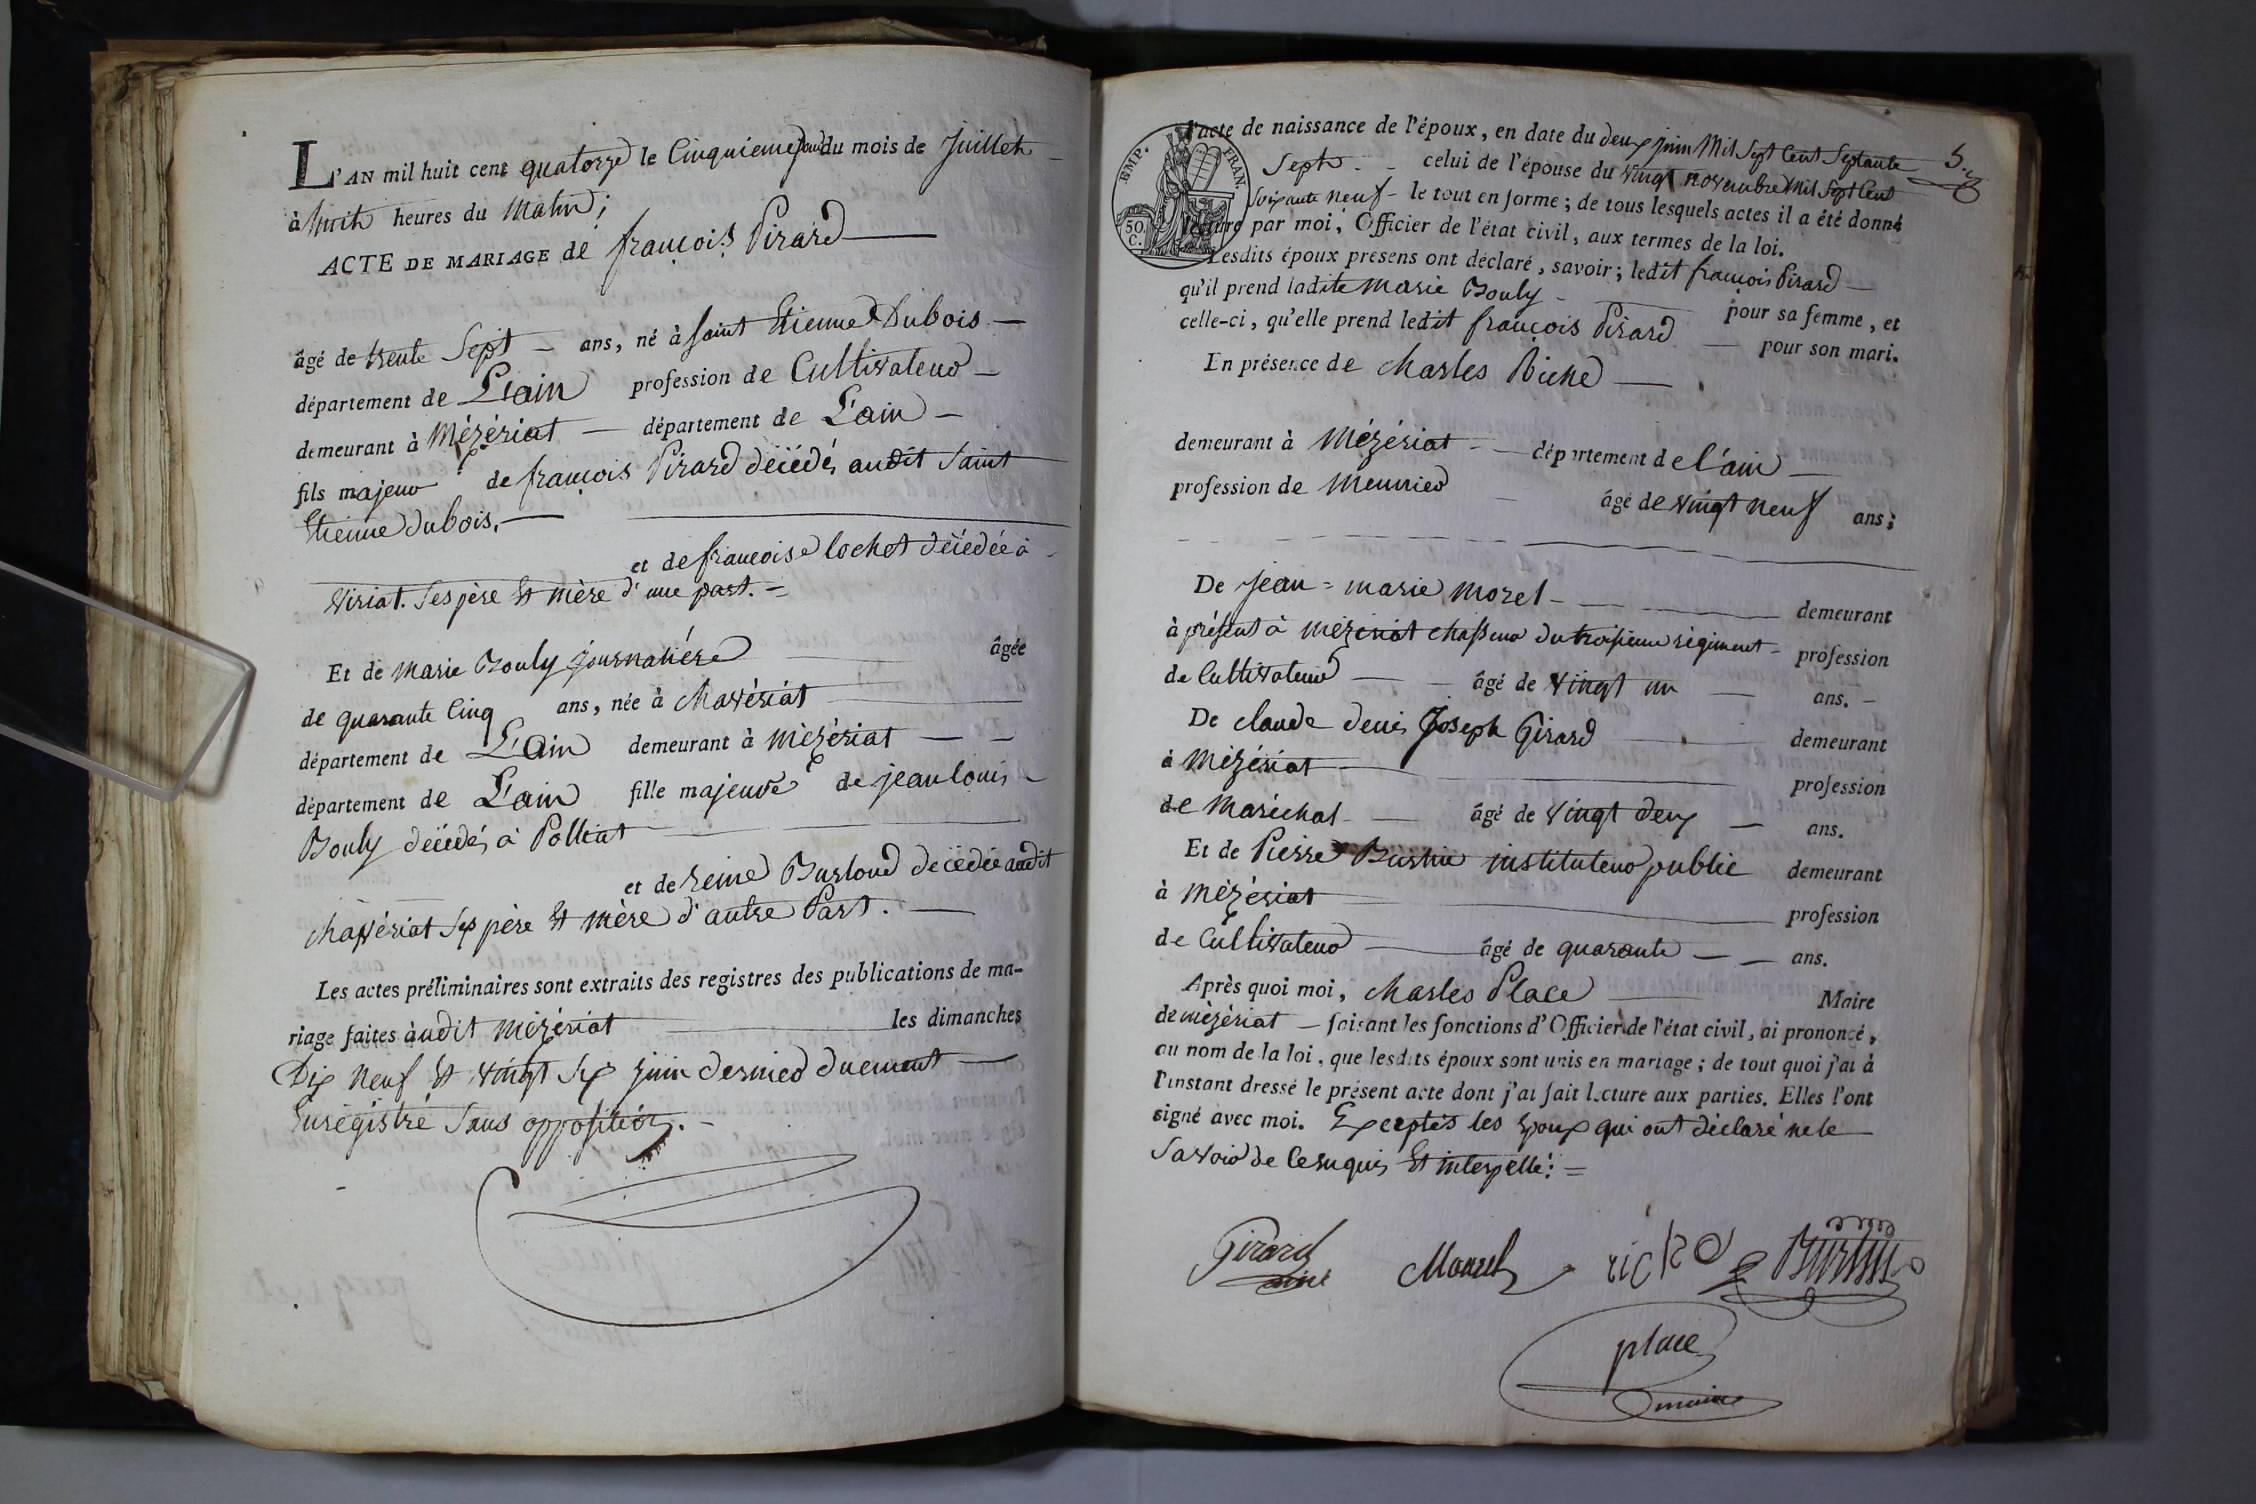 L'AN mil huit cent quatorze le Cinquieme jour du mois de Juillet
à huit heures du Matin;
ACTE DE MARIAGE de françois Pirard
âgé de trente Sept ans, né à Saint Etienne Dubois
département de L'ain profession de Cultivateur
demeurant à Mézériat département de L'ain
fils majeur de françois Pirard décédé audit Saint
Etienne dubois,
et de françoise lochet décédée à
Viriat. Ses père Et mère d'une part. =
Et de Marie Bouly journalière âgée
de quarante Cinq ans, née à Chavériat
département de L'Ain demeurant à Mézériat
département de L'ain fille majeure de jean louis
Bouly décédé à Polliat
et de Reine Burloud décédée audit
Chavériat Ses père Et mère d'autre Part.
Les actes préliminaires sont extraits des registres des publications de ma-
riage faites àudit Mézériat les dimanches
Dix neuf Et vingt Six juin dernier duement
Enregistré Sans opposition.
5.e
EMP. FRAN.
50. C.
l'acte de naissance de l'époux, en date du deux juin Mil Sept Cent Septante
Sept celui de l'épouse du vingt novembre Mil Sept Cent
Soixante neuf - le tout en forme; de tous lesquels actes il a été donné
lecture par moi, Officier de l'état civil, aux termes de la loi.
Lesdits époux présens ont déclaré, savoir; ledit françois Pirard
qu'il prend ladite Marie Bouly pour sa femme, et
celle-ci, qu'elle prend ledit françois Pirard pour son mari.
En présence de Charles Riche
demeurant à Mézériat département de l'ain
profession de Meunier âgé de vingt neuf ans;
De jean = marie morel demeurant
à présent à mézériat chasseur du troisieme régiment profession
de Cultivateur âgé de vingt un ans.
De claude denis Joseph Girard demeurant
à Mézériat profession
de Maréchal âgé de vingt deux ans.
Et de Pierre Burtin instituteur public demeurant
à Mézériat profession
de Cultivateur âgé de quarante ans.
Après quoi moi, Charles Place Maire
de mézériat faisant les fonctions d'Officier de l'état civil, ai prononcé,
au nom de la loi, que lesdits époux sont unis en mariage; de tout quoi j'ai à
l'instant dressé le présent acte dont j'ai fait lecture aux parties. Elles l'ont
signé avec moi. Exceptés les Epoux qui ont déclaré ne le
Savoir de Ce requis Et interpellé: =
Girard Morel riche Burtin
place
maire